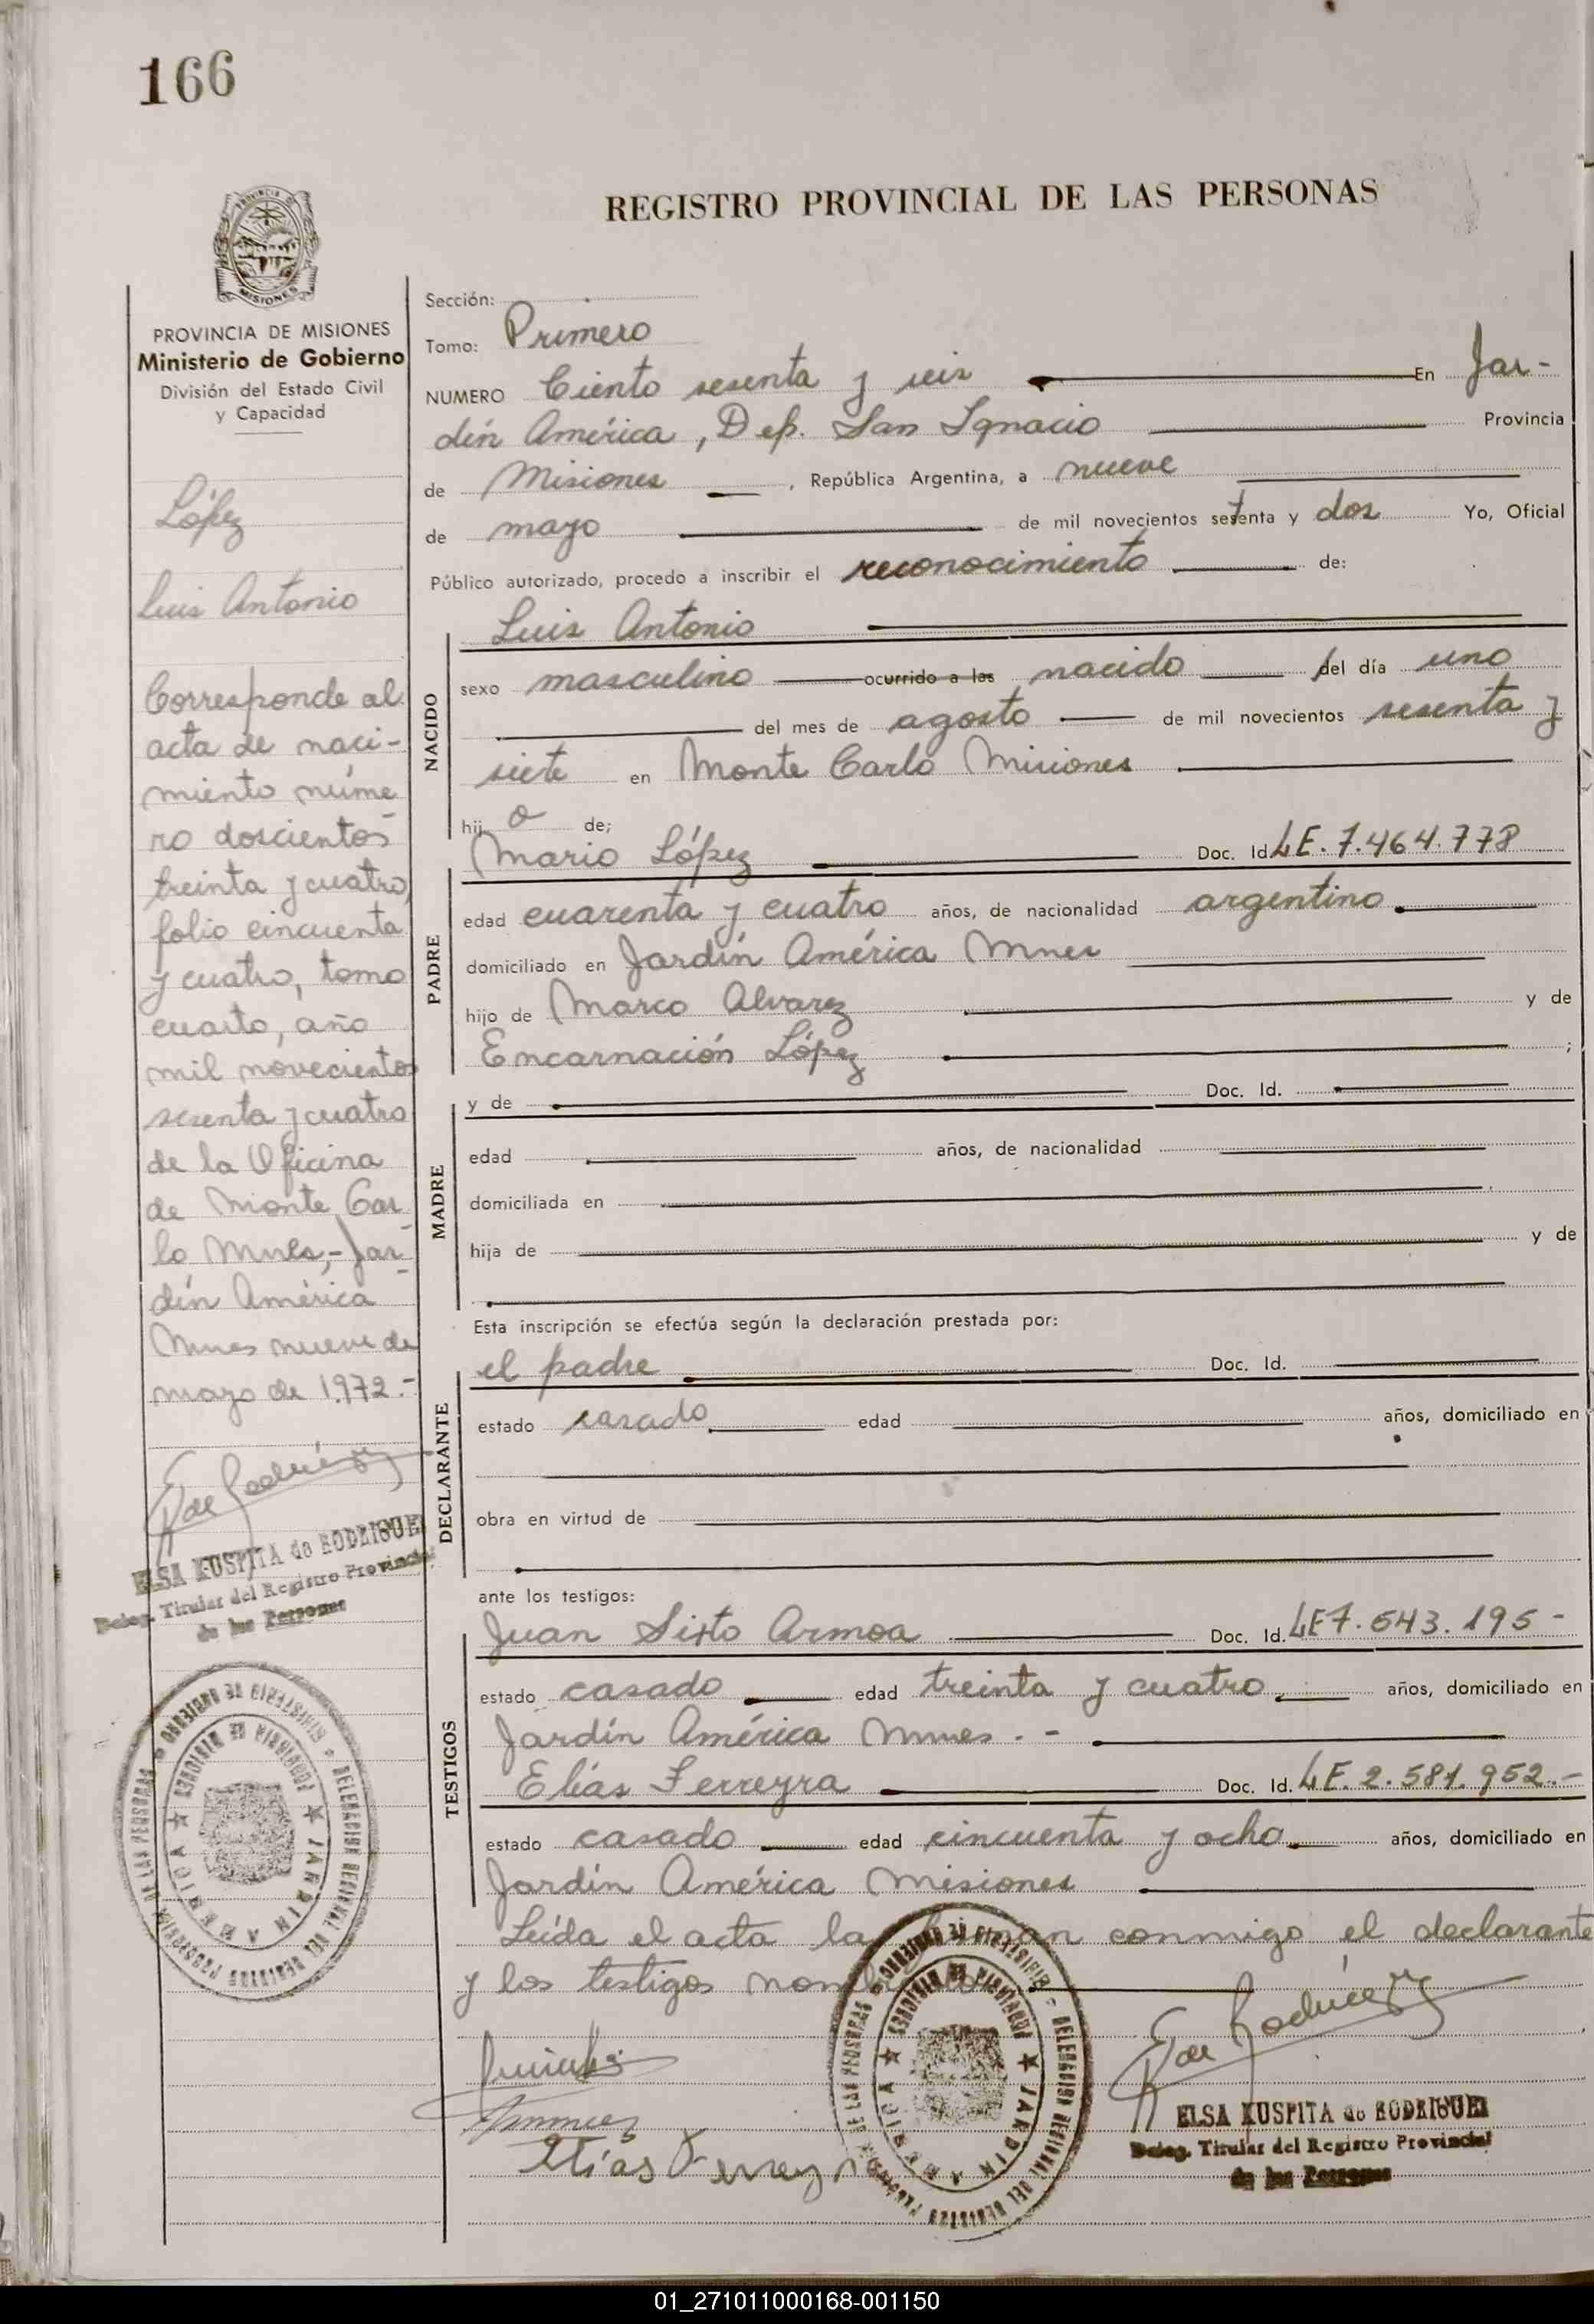 166
REGISTRO PROVINCIAL DE LAS PERSONAS
MISIONES
PROVINCIA DE MISIONES
Ministerio de Gobierno
División del Estado Civil
y Capacidad
López
Luis Antonio
Corresponde al
acta de naci-
miento núme
ro doscientos
treinta y cuatro,
folio cincuenta
y cuatro, tomo
cuarto, año
mil novecientos
sesenta y cuatro
de la Oficina
de Monte Car
lo Mnes,- Jar-
dín América
Mnes nueve de
mayo de 1972.-
ELSA KUSPITA de RODRIGUEZ
Deleg. Titular del Registro Provincial
de las Personas
Sección:
Tomo: Primero
NUMERO Ciento sesenta y seis En Jar-
dín América, Dep. San Ignacio Provincia
de Misiones , República Argentina, a nueve
de mayo de mil novecientos setenta y dos Yo, Oficial
Público autorizado, procedo a inscribir el reconocimiento de:
NACIDO
Luis Antonio
sexo masculino ocurrido a las nacido del día uno
del mes de agosto de mil novecientos sesenta y
siete en Monte Carlo Misiones
hijo de;
PADRE
Mario López Doc. Id. LE. 7.464.778
edad cuarenta y cuatro años, de nacionalidad argentino.
domiciliado en Jardín América Mnes
hijo de Marco Alvarez y de
Encarnación López ;
MADRE
y de Doc. Id.
edad años, de nacionalidad
domiciliada en
hija de y de
Esta inscripción se efectúa según la declaración prestada por:
DECLARANTE
el padre Doc. Id.
estado casado edad años, domiciliado en
obra en virtud de
ante los testigos:
TESTIGOS
Juan Sixto Armoa Doc. Id. LE 7.643.195-
estado casado edad treinta y cuatro años, domiciliado en
Jardín América Mnes.-
Elías Ferreyra Doc. Id. LE. 2.581.952.-
estado casado edad cincuenta y ocho años, domiciliado en
Jardín América Misiones
Leída el acta la firman conmigo el declarante
y los testigos nombrados
Elías Ferreyra
ELSA KUSPITA de RODRIGUEZ
Deleg. Titular del Registro Provincial
de las Personas
01_271011000168-001150